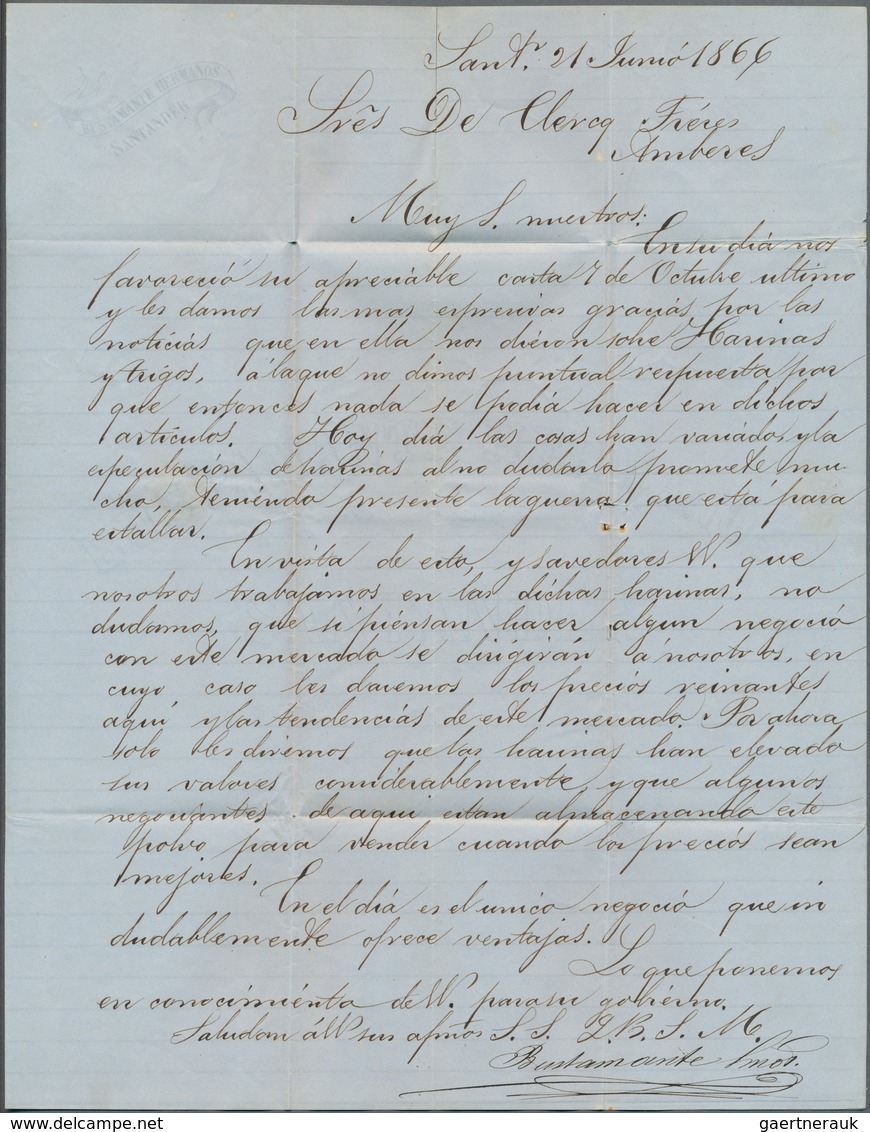 BUSTAMANTE HERMANOS
SANTANDER
Sant.r 21 Junió 1866
Srẽs De Clercq Fréres
Amberes
Muy S. nuestros:
En su diá nos
favoreció su apreciáble carta 7 de Octubre ultimo
y les damos las mas espresivas graciás por las
notíciás que en ella nos diéron sobre Harinas
y trigos, á la que no dimos puntual respuesta por
que entonces nada se podiá hacer en dichos
artículos. Hoy diá las cosas han variado, y la
especulación de hariñas al no dudarlo promete mu-
cho, teniéndo presente la guerra que está para
estallar.
En vista de esto, y savedores VV. que
nosotros trabajamos en las díchas harinas, no
dudamos, que si piénsan hacer algun negoció
con este mercado se dirigirán á nosotros, en
cuyo caso les daremos los preciós reinantes
aquí y las tendenciás de este mercado. Por ahora
solo les diremos que las harinas han elevado
sus valores considerablemente y que algunos
negociantes de aqui estan almacenando este
polvo para vender cuando los preciós sean
mejores.
En el diá es el unico negoció que in
dudablemente ofrece ventajas.
Lo que ponemos
en conocimiénto de VV. para su gobiérno.
Saludan á VV sus afmõs S. S. Q. B. S. M.
Bustamante Hnos.
gaertnerauk